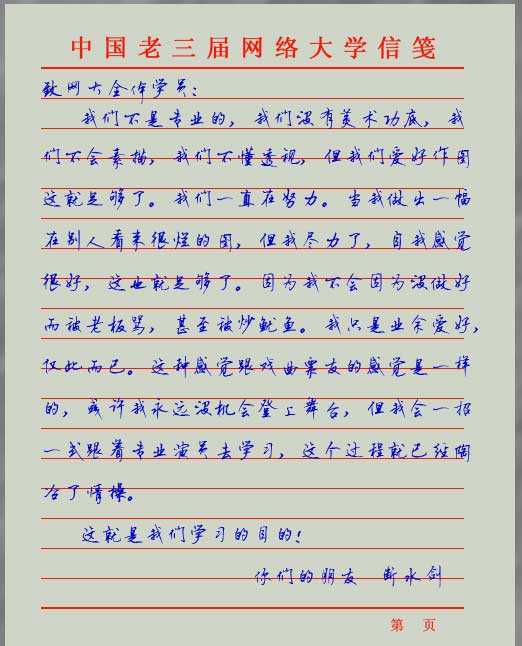 中国老三届网络大学信笺
致网大全体学员：
我们不是专业的，我们没有美术功底，我
们不会素描，我们不懂透视，但我们爱好作图
这就足够了。我们一直在努力。当我做出一幅
在别人看来很烂的图，但我尽力了，自我感觉
很好，这也就足够了。因为我不会因为没做好
而被老板骂，甚至被炒鱿鱼。我只是业余爱好，
仅此而已。这种感觉跟戏曲票友的感觉是一样
的，或许我永远没机会登上舞台，但我会一招
一式跟着专业演员去学习，这个过程就已经陶
冶了情操。
这就是我们学习的目的！
你们的朋友 断水剑
第 页